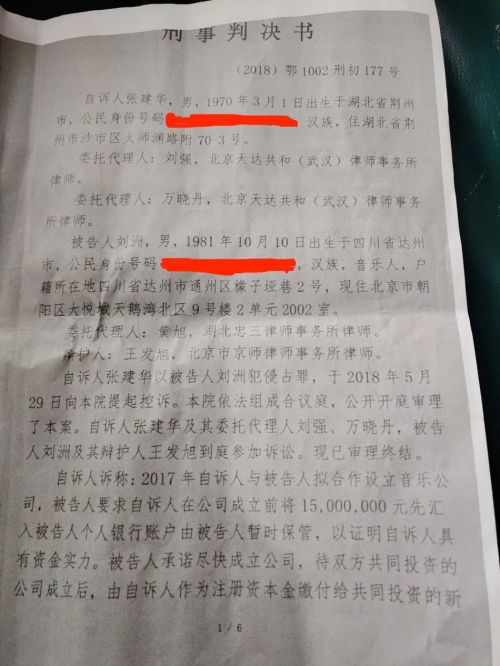 刑事判决书
（2018）鄂 1002 刑初 177 号
自诉人张建华，男，1970 年 3 月 1 日出生于湖北省荆州
市，公民身份号码 汉族，住湖北省荆
州市沙市区大师渊路附 70-3 号。
委托代理人：刘强，北京天达共和（武汉）律师事务所
律师。
委托代理人：万晓丹，北京天达共和（武汉）律师事务
所律师。
被告人刘洲，男，1981 年 10 月 10 日出生于四川省达州
市，公民身份号码 ，汉族，音乐人，户
籍所在地四川省达州市通州区檬子垭巷 2 号，现住北京市朝
阳区大悦城天鹅湾北区 9 号楼 2 单元 2002 室。
委托代理人：黄旭，湖北忠三律师事务所律师。
辩护人：王发旭，北京市京师律师事务所律师。
自诉人张建华以被告人刘洲犯侵占罪，于 2018 年 5 月
29 日向本院提起控诉。本院依法组成合议庭，公开开庭审理
了本案。自诉人张建华及其委托代理人刘强、万晓丹，被告
人刘洲及其辩护人王发旭到庭参加诉讼。现已审理终结。
自诉人诉称：2017 年自诉人与被告人拟合作设立音乐公
司，被告人要求自诉人在公司成立前将 15,000,000 元先汇
入被告人个人银行账户由被告人暂时保管，以证明自诉人具
有资金实力。被告人承诺尽快成立公司，待双方共同投资的
公司成立后，由自诉人作为注册资本金缴付给共同投资的新
1 / 6